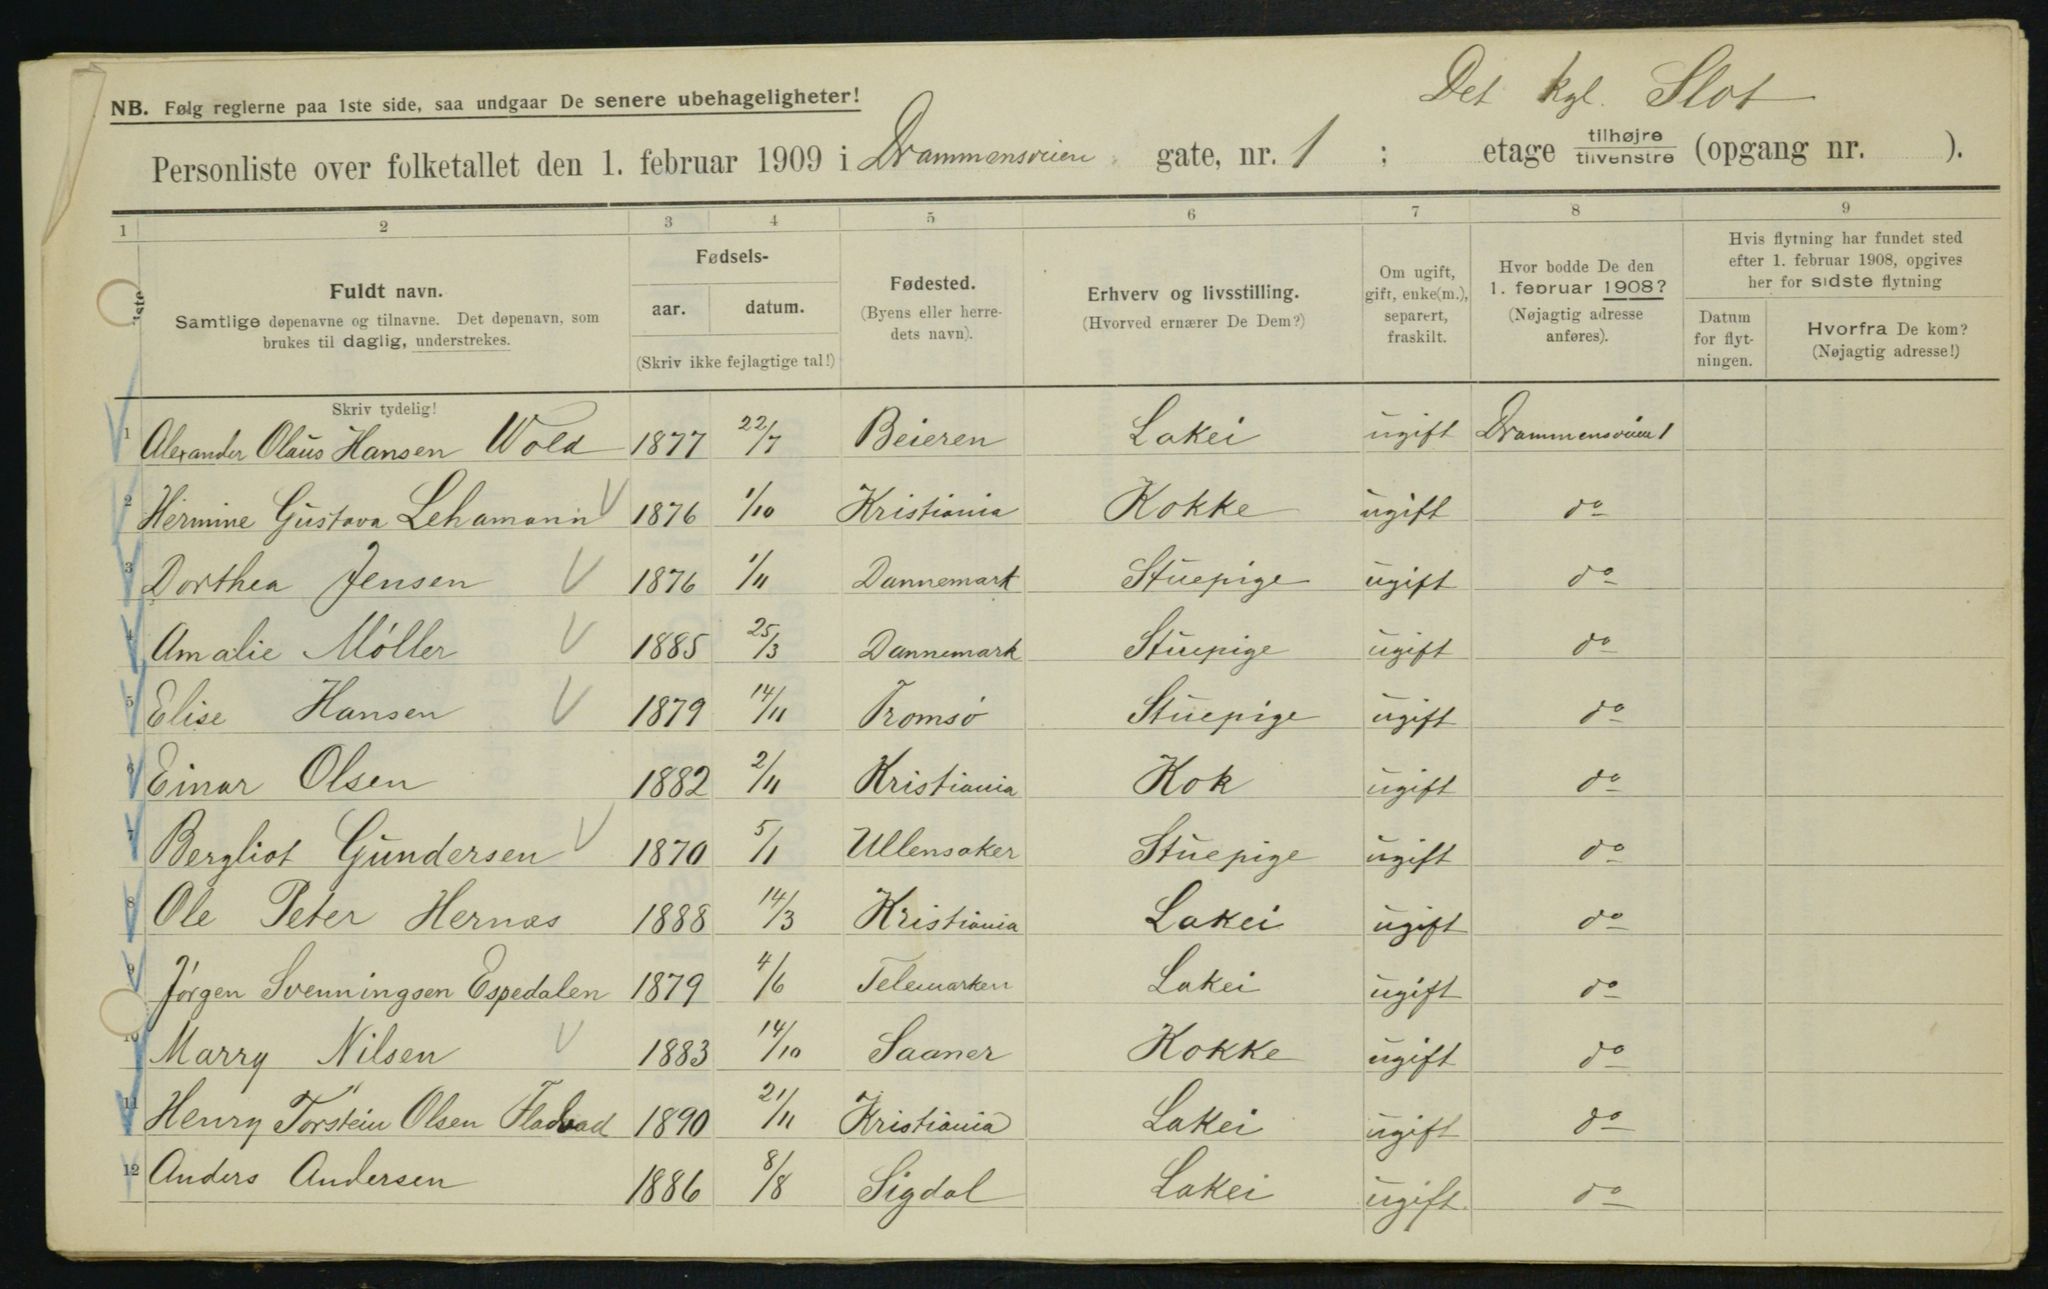 Det kgl. Slot
NB. Følg reglerne paa 1ste side, saa undgaar De senere ubehageligheter!
Personliste over folketallet den 1. februar 1909 i Drammensveien gate, nr. 1 ; etage tilhøjre/tilvenstre (opgang nr. ).
1 2 3 4 5 6 7 8 9
Fuldt navn.
Samtlige døpenavne og tilnavne. Det døpenavn, som
brukes til daglig, understrekes.
Skriv tydelig!
Fødsels-
aar. datum.
(Skriv ikke fejlagtige tal!)
Fødested.
(Byens eller herre-
dets navn).
Erhverv og livsstilling.
(Hvorved ernærer De Dem?)
Om ugift,
gift, enke(m.),
separert,
fraskilt.
Hvor bodde De den
1. februar 1908?
(Nøjagtig adresse
anføres).
Hvis flytning har fundet sted
efter 1. februar 1908, opgives
her for sidste flytning
Datum
for flyt-
ningen.
Hvorfra De kom?
(Nøjagtig adresse!)
1 Alexander Olaus Hansen Wold 1877 22/7 Beieren Lakei ugift Drammensveien 1
2 Hermine Gustava Lehamann 1876 1/10 Kristiania Kokke ugift do
3 Dorthea Jensen 1876 1/11 Dannemark Stuepige ugift do
4 Amalie Møller 1885 25/3 Dannemark Stuepige ugift do
5 Elise Hansen 1879 14/11 Tromsø Stuepige ugift do
6 Einar Olsen 1882 2/11 Kristiania Kok ugift do
7 Bergliot Gundersen 1870 5/1 Ullensaker Stuepige ugift do
8 Ole Peter Hernæs 1888 14/3 Kristiania Lakei ugift do
9 Jørgen Svenningsen Espedalen 1879 4/6 Telemarken Lakei ugift do
10 Marry Nilsen 1883 14/10 Saaner Kokke ugift do
11 Henry Torstein Olsen Fladvad 1890 21/11 Kristiania Lakei ugift do
12 Anders Andersen 1886 8/8 Sigdal Lakei ugift do